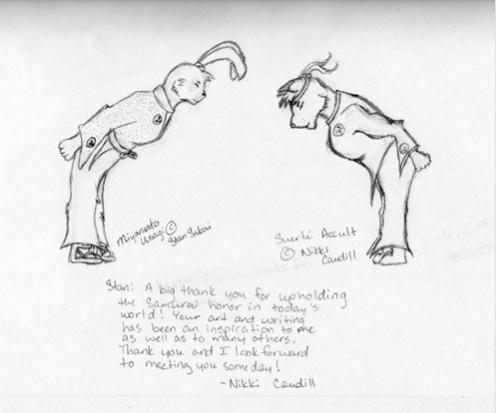 Miyamoto
Usagi ©
Stan Sakai
Suerté Accult
© Nikki
Caudill
Stan: A big thank you for upholding
the Samurai honor in today's
world! Your art and writing
has been an inspiration to me
as well as to many others.
Thank you and I look forward
to meeting you someday!
-Nikki Caudill